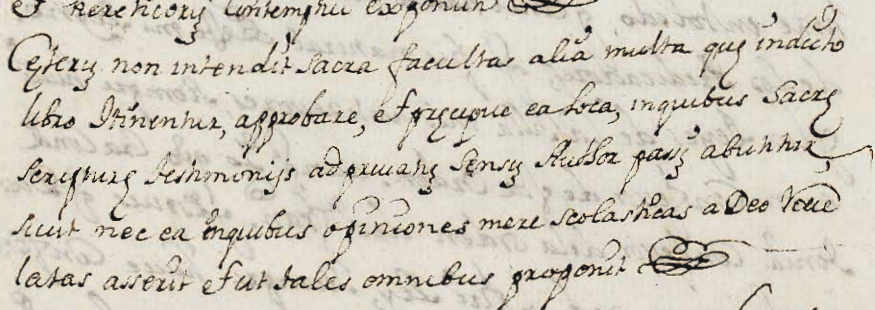 et Hereticorȝ Contemptui exponun
Cęterȝ non intendit sacra facultas alia multa quę in dicto
libro Itinentur, approbare, et pręcipue ea loca, in quibus Sacrę
scripturę testimonijs ad priuatȝ Sensȝ Author passȝ abutitur,
sicut nec ea in quibus opiniones mere scolasticas a Deo Veue
latas asserit et ut tales omnibus proponit